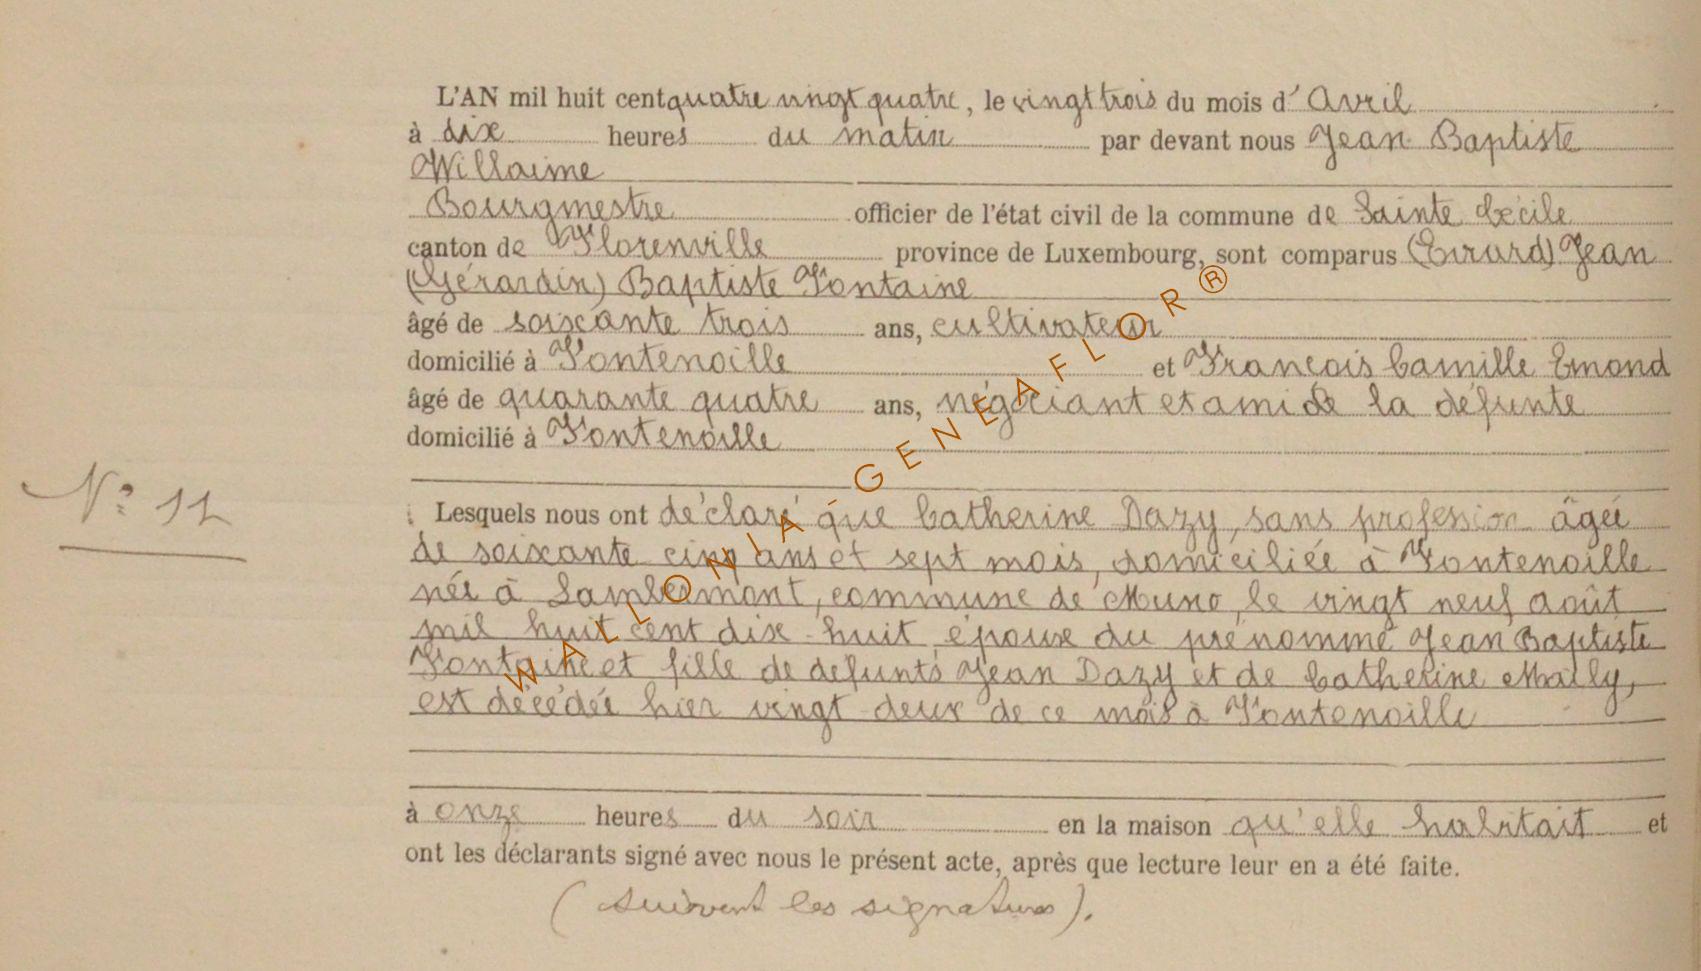 L'AN mil huit cent quatre vingt quatre, le vingt trois du mois d' Avril
à dix heures du matin par devant nous Jean Baptiste
Willaime
Bourgmestre officier de l'état civil de la commune de Sainte Cécile
canton de Florenville province de Luxembourg, sont comparus (Evrard) Jean
(Gérardin) Baptiste Fontaine
âgé de soixante trois ans, cultivateur
domicilié à Fontenoille et François Camille Emond
âgé de quarante quatre ans, négociant et ami de la défunte
domicilié à Fontenoille
N° 11
Lesquels nous ont déclaré que Catherine Dazy, sans profession âgée
de soixante cinq ans et sept mois, domiciliée à Fontenoille
née à Lambermont, commune de Muno, le vingt neuf août
mil huit cent dix-huit, épouse du prénommé Jean Baptiste
Fontaine et fille de defunts Jean Dazy et de Catherine Mailly,
est décédée hier vingt-deux de ce mois à Fontenoille
à onze heures du soir en la maison qu'elle habitait et
ont les déclarants signé avec nous le présent acte, après que lecture leur en a été faite.
(suivent les signatures).
WALLONIA-GENEAFLOR®